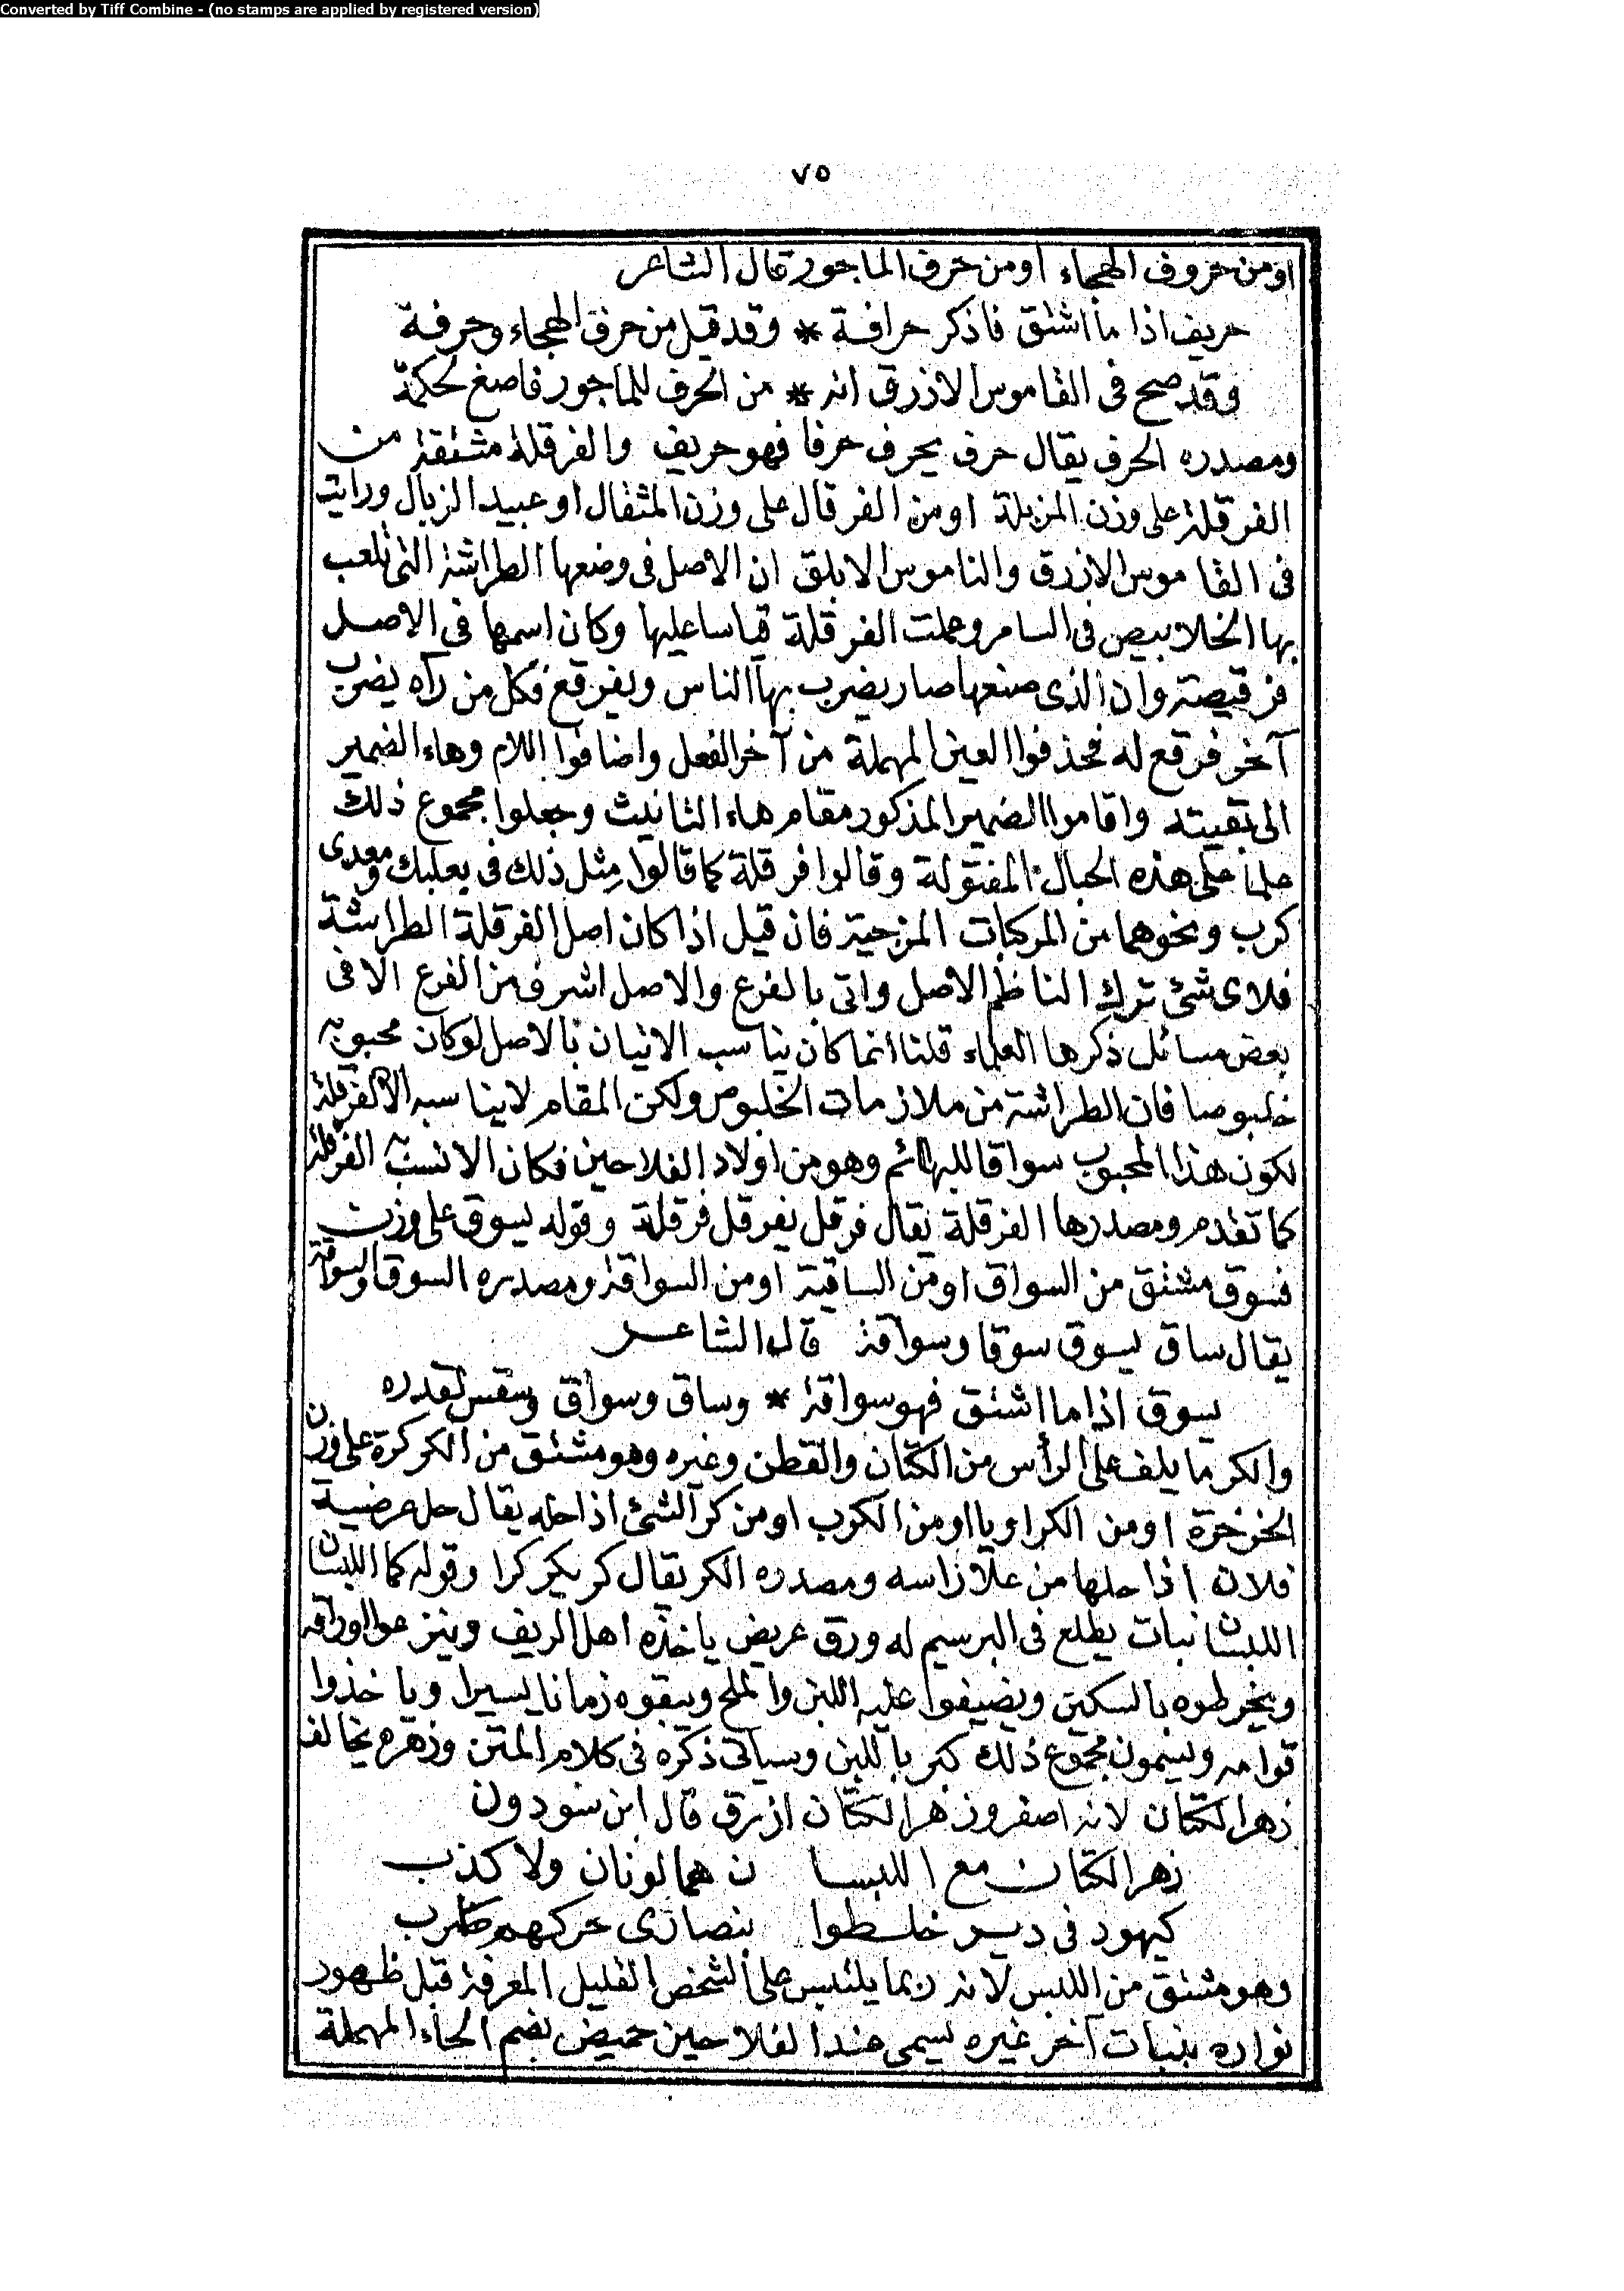 Converted by Tiff Combine - (no stamps are applied by registered version)
٧٥
او من حروف الهجاء او من حرف الماجور قال الشاعر
حريف اذا ما اشتق فاذكر حرافة * وقد قيل من حرف الهجاء وحرفة
وقد صح فى القاموس الازرق انه * من الحرف للماجور فاصغ لحكمة
ومصدره الحرف يقال حرف يحرف حرفا فهو حريف والفرقلة مشتقة من
الفرقلة على وزن المزبلة او من الفرقال على وزن المثقال او عبيد الزبال ورايت
فى القاموس الازرق والناموس الابلق ان الاصل فى وضعها الطراشة التى تلعب
بها الخلابيص فى السامر وعملت الفرقلة قياسا عليها وكان اسمها فى الاصل
فرقيصة وان الذى صنعها صار يضرب بها الناس ويفرقع فكل من رآه يضرب
آخر فرقع له فحذفوا العين المهملة من آخر الفعل واضافوا اللام وهاء الضمير
الى بقيته واقاموا الضمير المذكور مقام هاء التانيث وجعلوا مجموع ذلك
علما على هذه الحبال المفتولة وقالوا فرقلة كما قالوا مثل ذلك فى بعلبك ومعدى
كرب ونحوهما من المركبات المزجية فان قيل اذا كان اصل الفرقلة الطراشة
فلاى شئ ترك الناظم الاصل واتى بالفرع والاصل اشرف من الفرع الا فى
بعض مسائل ذكرها العلماء قلنا انما كان يناسب الاتيان بالاصل لو كان محبوبه
خلبوصا فان الطراشة من ملازمات الخلبوص ولكن المقام لا يناسبه الا الفرقلة
لكون هذا المحبوب سواقا للبهائم وهو من اولاد الفلاحين فكان الانسب الفرقلة
كما تقدم ومصدرها الفرقلة يقال فرقل يفرقل فرقلة وقوله يسوق على وزن
فسوق مشتق من السواق او من الساقية او من السواقة ومصدره السوق والسواقة
يقال ساق يسوق سوقا وسواقة قال الشاعر
يسوق اذا ما اشتق فهو سواقة * وساق وسواق لعدره
والكر ما يلف على الرأس من الكتان والقطن وغيره وهو مشتق من الكركرة على وزن
الخرخرة او من الكراويا او من الكرب او من كر الشئ اذا حله يقال حل عرضية
فلان اذا حلها من علا راسه ومصدره الكر يقال كر يكر كرا وقوله كما اللبسان
اللبسان نبات يطلع فى البرسيم له ورق عريض ياخذه اهل الريف وينزعوا اوراقه
ويخرطوه بالسكين ويضيفوا عليه اللبن والملح ويبقوه زمانا يسيرا وياخذوا
قوامه ويسمون مجموع ذلك كبر باللبن وسياتى ذكره فى كلام المتن وزهره يخالف
زهر الكتان لانه اصفر وزهر الكتان ازرق قال ابن سودون
زهر الكتان مع اللبسا ن هما لونان ولا كذب
كيهود فى دير خلطوا بنصارى حركهم طرب
وهو مشتق من اللبس لانه ربما يلتبس على الشخص القليل المعرفة قبل ظهور
نواره بنبات آخر غيره يسمى عند الفلاحين حميض بضم الحاء المهملة